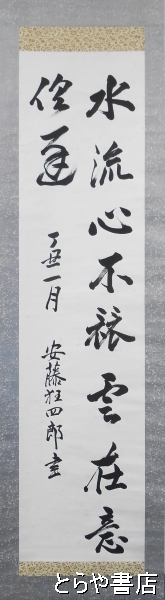 水流心不競雲在意
俱遅
丁丑一月 安藤狂四郎書
とらや書店